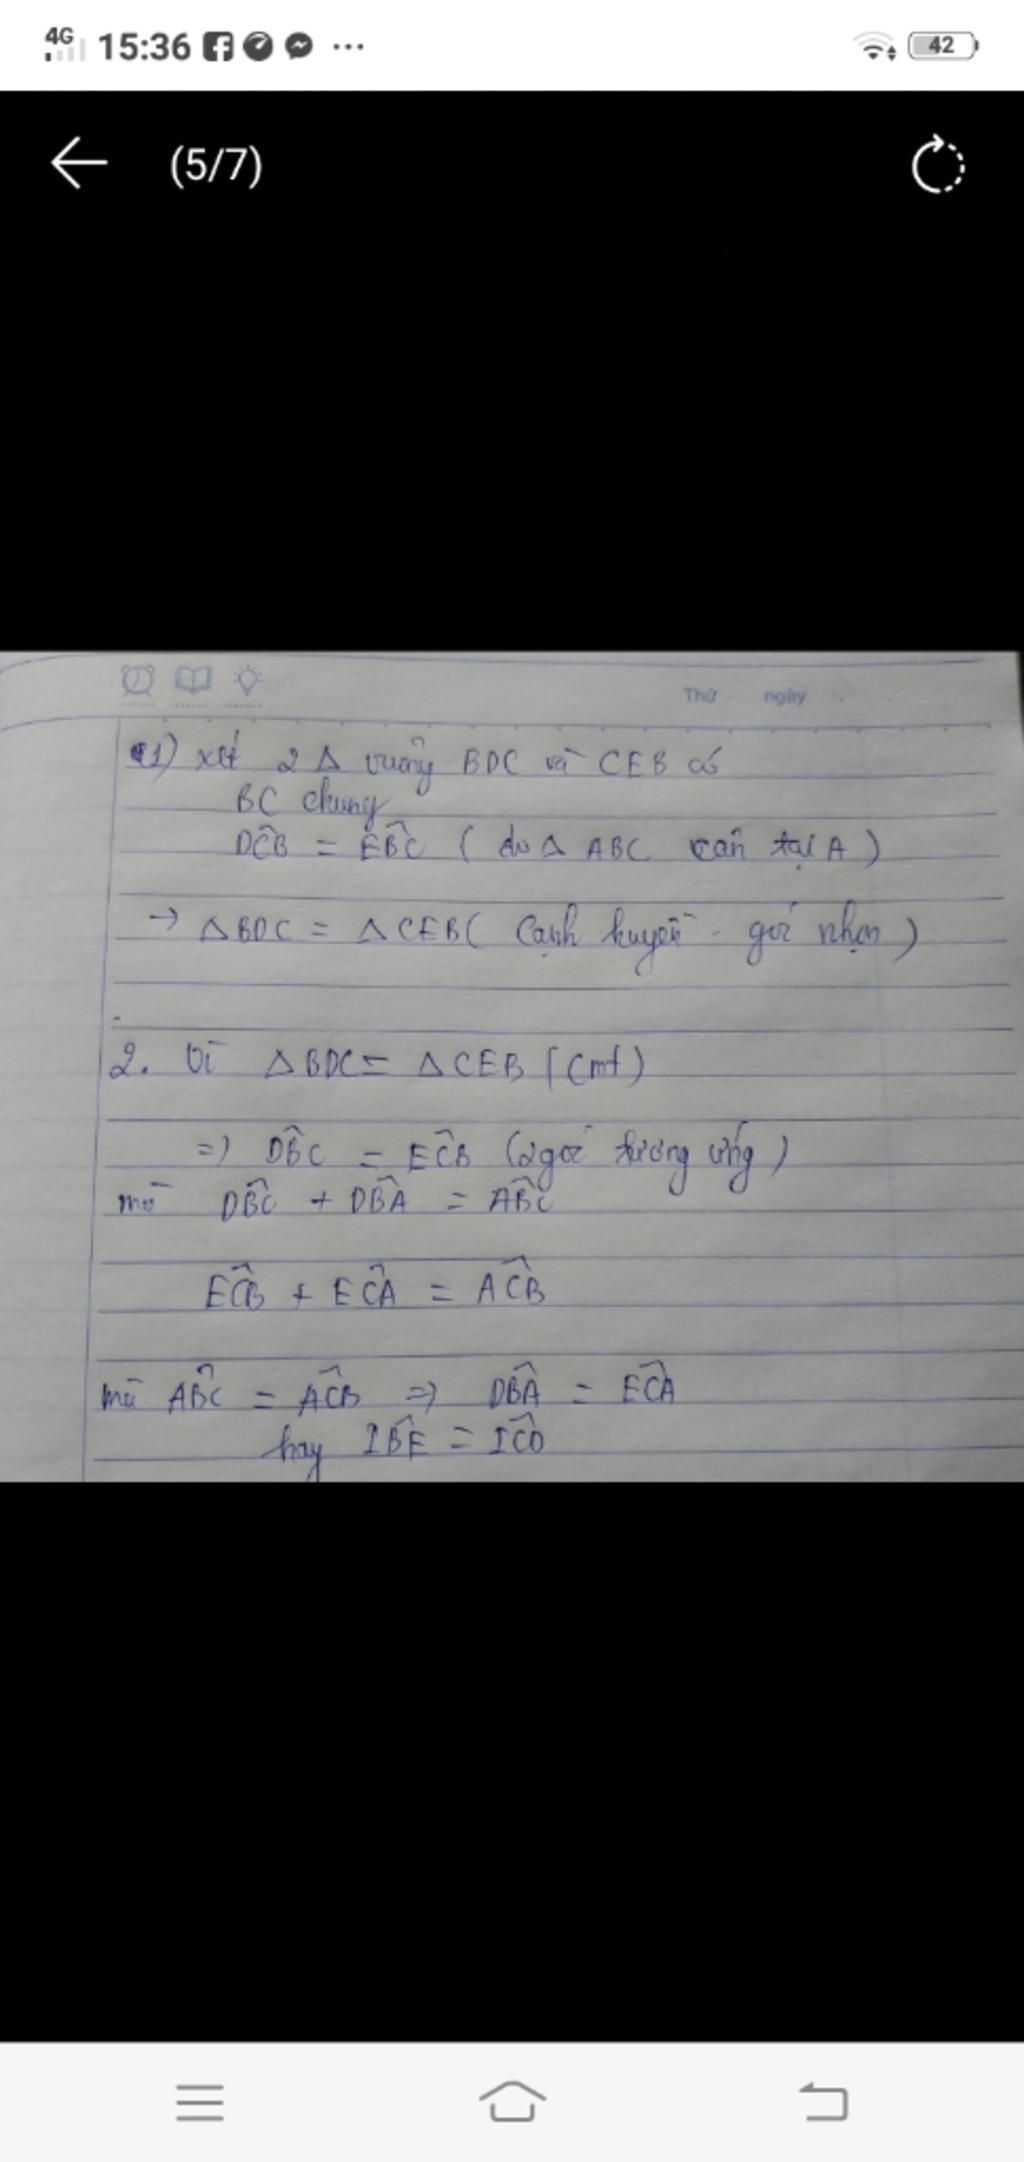 4G 15:36 ... 42
(5/7)
Thứ ngày
1) xét 2 Δ vuông BDC và CEB có
BC chung
DĈB = EB̂C ( do Δ ABC cân tại A )
→ ΔBDC = ΔCEB ( Cạnh huyền - góc nhọn )
2. Vì ΔBDC = ΔCEB ( cmt )
=> DB̂C = EĈB ( 2 góc tương ứng )
mà DB̂C + DB̂A = AB̂C
EĈB + EĈA = AĈB
mà AB̂C = AĈB => DB̂A = EĈA
hay IB̂E = IĈD